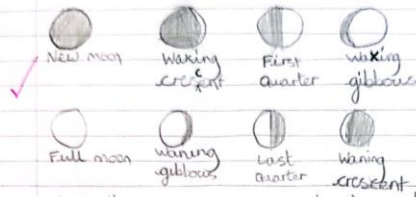 New moon
Waxing
crescent
First
Quarter
waxing
gibbous
Full moon
waning
gibbous
Last
Quarter
Waning
crescent